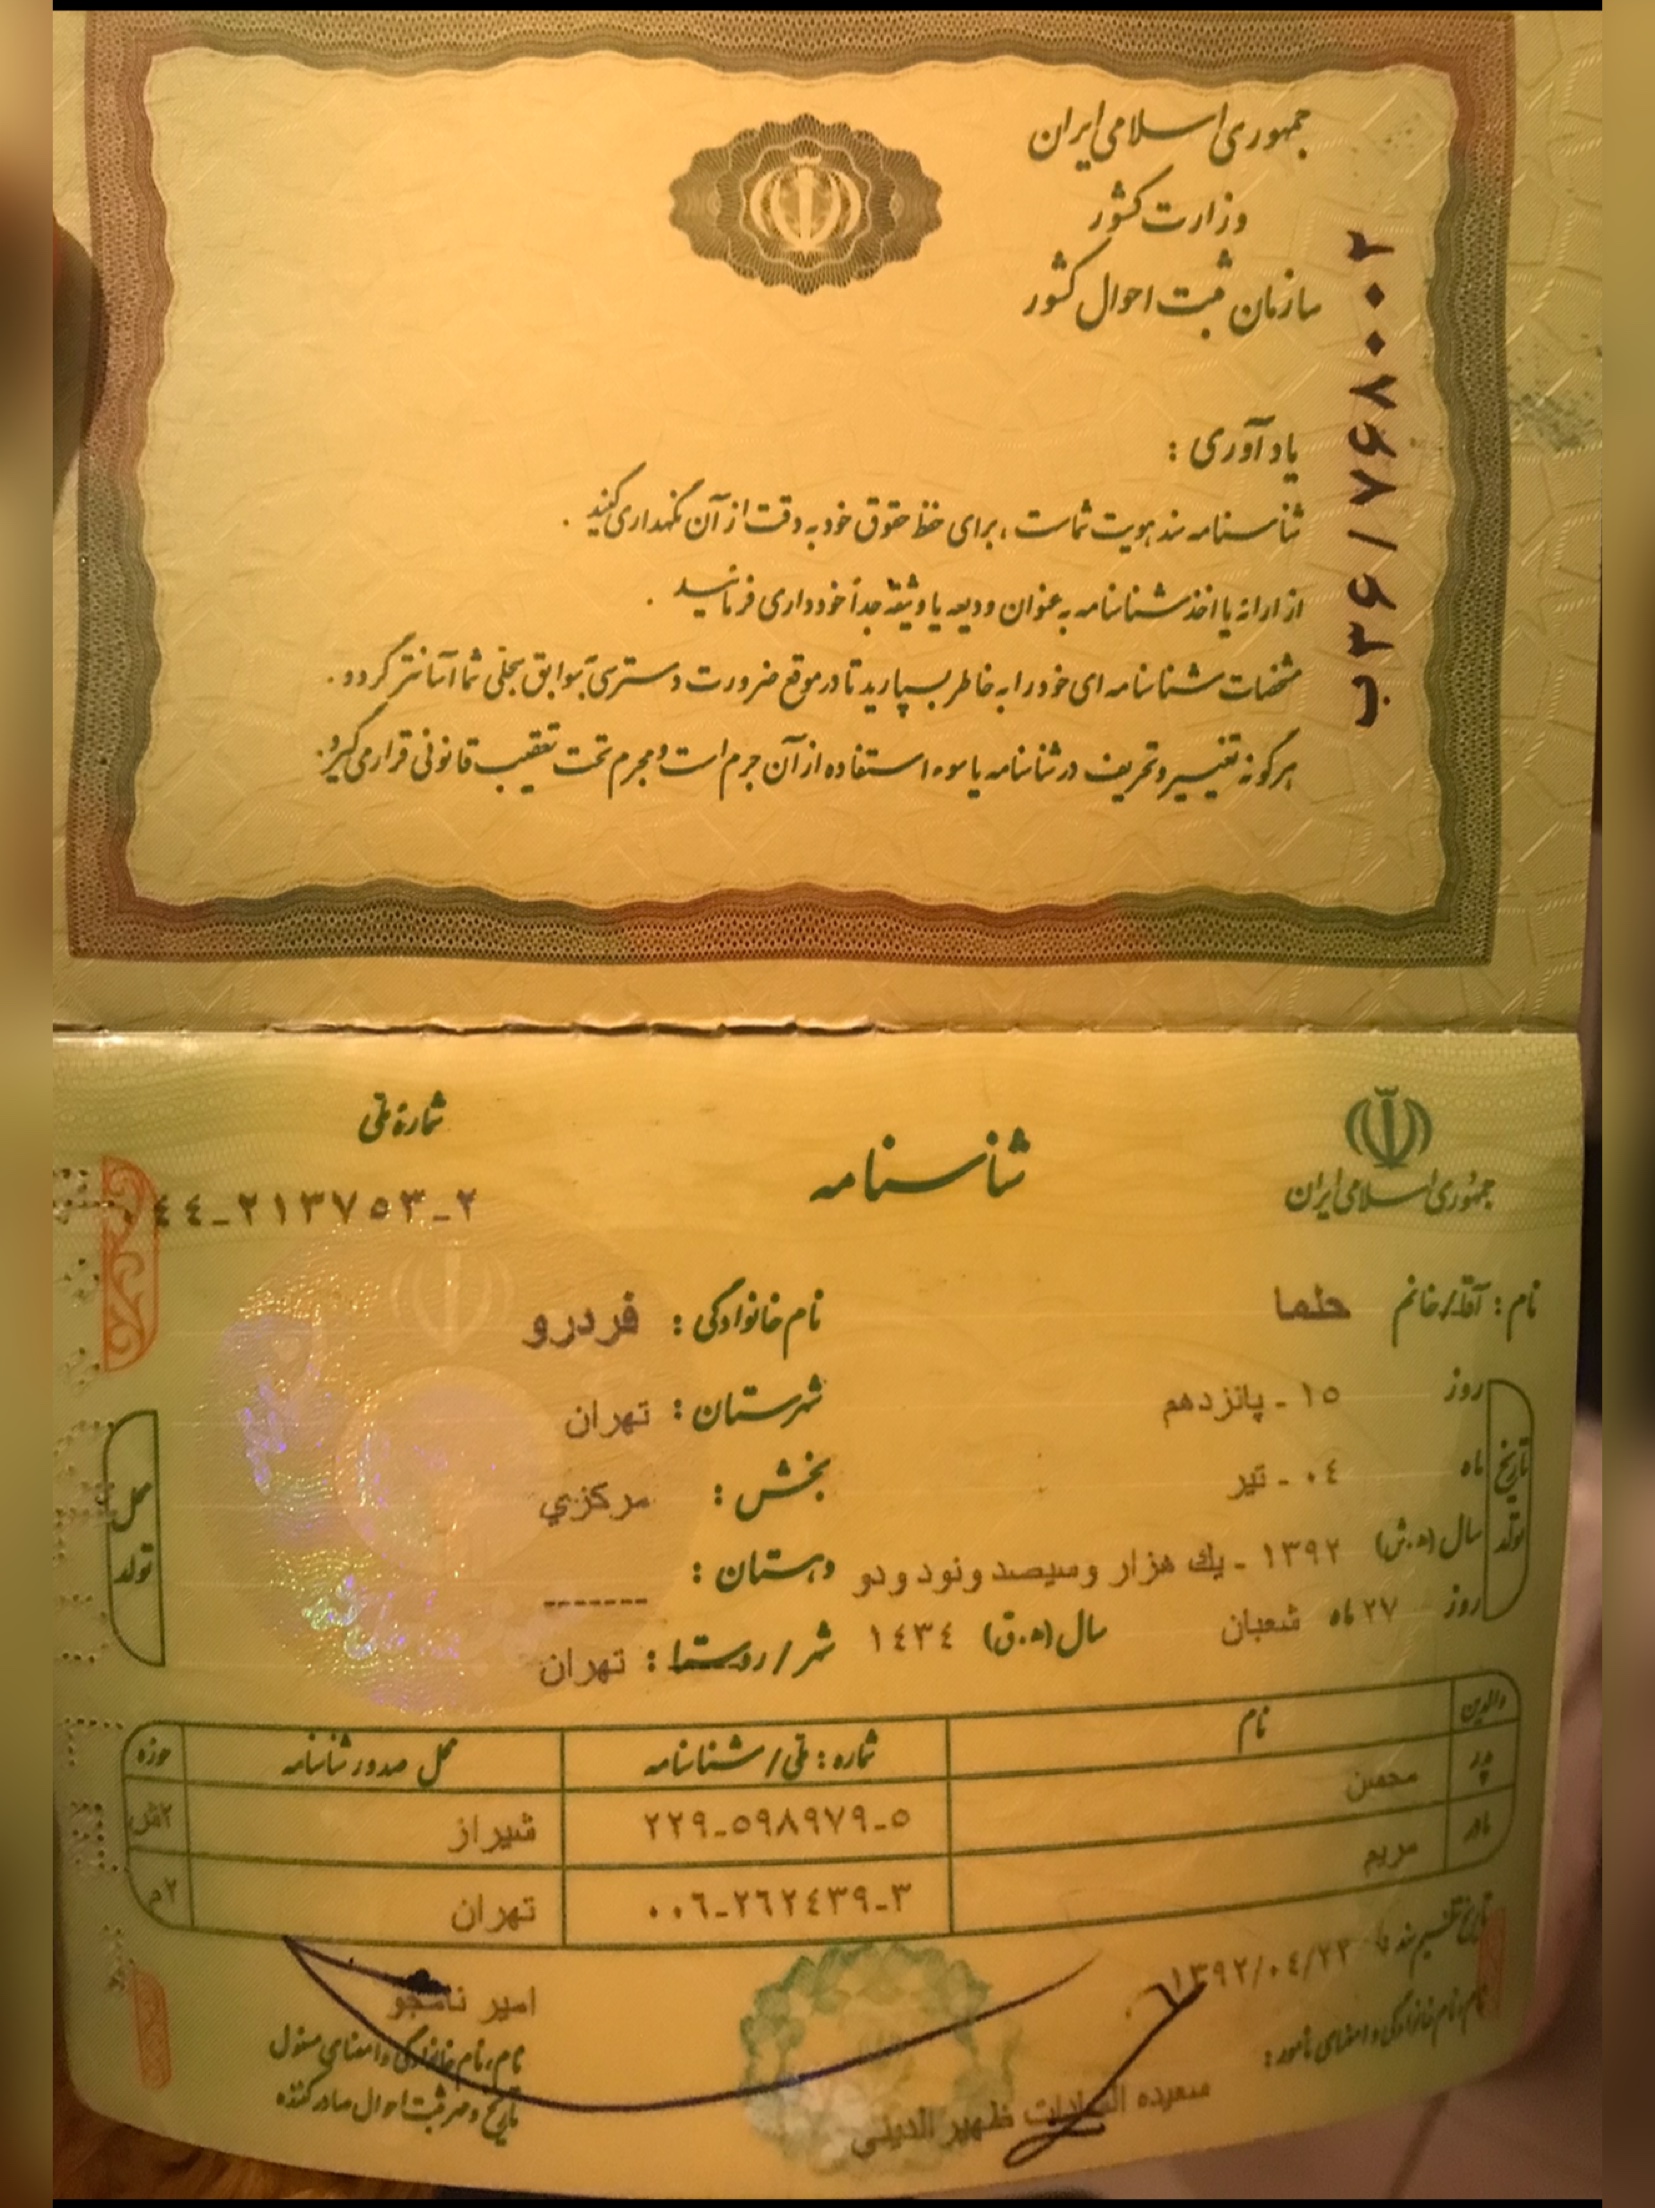 جمهوری اسلامی ایران
وزارت کشور
سازمان ثبت احوال کشور
ب۳۶/۸۶۷۰۰۲
یادآوری :
شناسنامه سند هویت شماست ، برای حفظ حقوق خود به دقت از آن نگهداری کنید .
از ارائه یا اخذ شناسنامه به عنوان ودیعه یا وثیقه جداً خودداری فرمائید .
مشخصات شناسنامه ای خود را به خاطر بسپارید تا در موقع ضرورت دسترسی بسوابق سجلی شما آسانتر گردد .
هرگونه تغییر و تحریف در شناسنامه یا سوء استفاده از آن جرم است و مجرم تحت تعقیب قانونی قرار می گیرد .
جمهوری اسلامی ایران
شناسنامه
شماره ملی
٤٤-٢١٣٧٥٣-٢
نام : آقا/خانم حلما
نام خانوادگی : فردرو
تاریخ تولد
روز ١٥ - پانزدهم
ماه ٠٤ - تیر
سال (ه.ش) ١٣٩٢ - يك هزار وسيصد ونود ودو
روز ٢٧ ماه شعبان سال (ه.ق) ١٤٣٤
محل تولد
شهرستان : تهران
بخش : مرکزي
دهستان : -------
شهر / روستا : تهران
والدین نام شماره : ملی / شناسنامه محل صدور شناسنامه حوزه
پدر محسن ٢٢٩-٥٩٨٩٧٩-٥ شیراز ٢ش
مادر مریم ٠٠٦-٢٦٢٤٣٩-٣ تهران ٢م
تاریخ تنظیم سند : ١٣٩٢/٠٤/٢٢
نام ، نام خانوادگی و امضای مامور :
سعیده السادات ظهیر الدینی
امیر نامجو
نام ، نام خانوادگی و امضای مسئول
تاریخ و مهر ثبت احوال صادر کننده